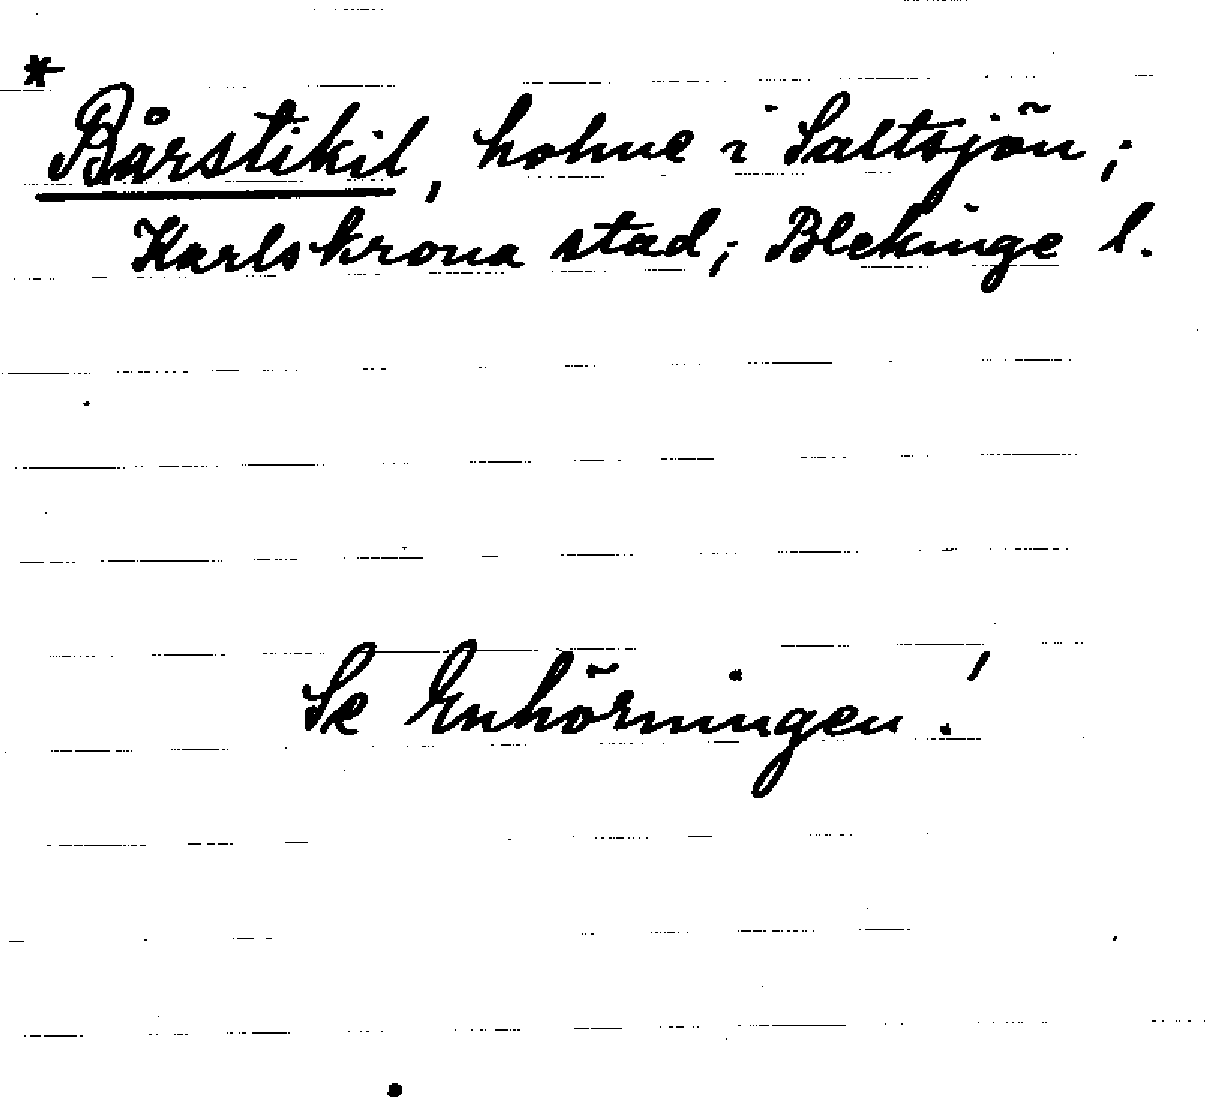 * Bårstikil, holme i Saltsjön;
Karlskrona stad; Blekinge l.
Se Enhörningen!